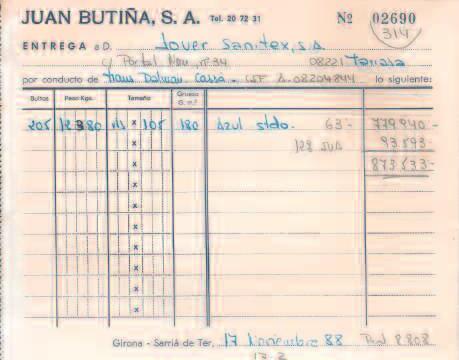 JUAN BUTIÑA, S. A. Tel. 20 72 31 Nº 02690
314
ENTREGA a D. Jover Sanitex, s.a.
c/ Portal Nou, nº 34 08221 Terrasa
por conducto de Trans Dalmau Cassà - CIF A.08204844 lo siguiente:
Bultos Peso Kgs. Tamaño Grueso G. m.²
205 12380 x 105 180 Azul stdo. 63- 779940-
x 12% 93593-
x 873533-
x
x
x
x
x
x
x
Girona - Sarriá de Ter, 17 Noviembre 88 8808